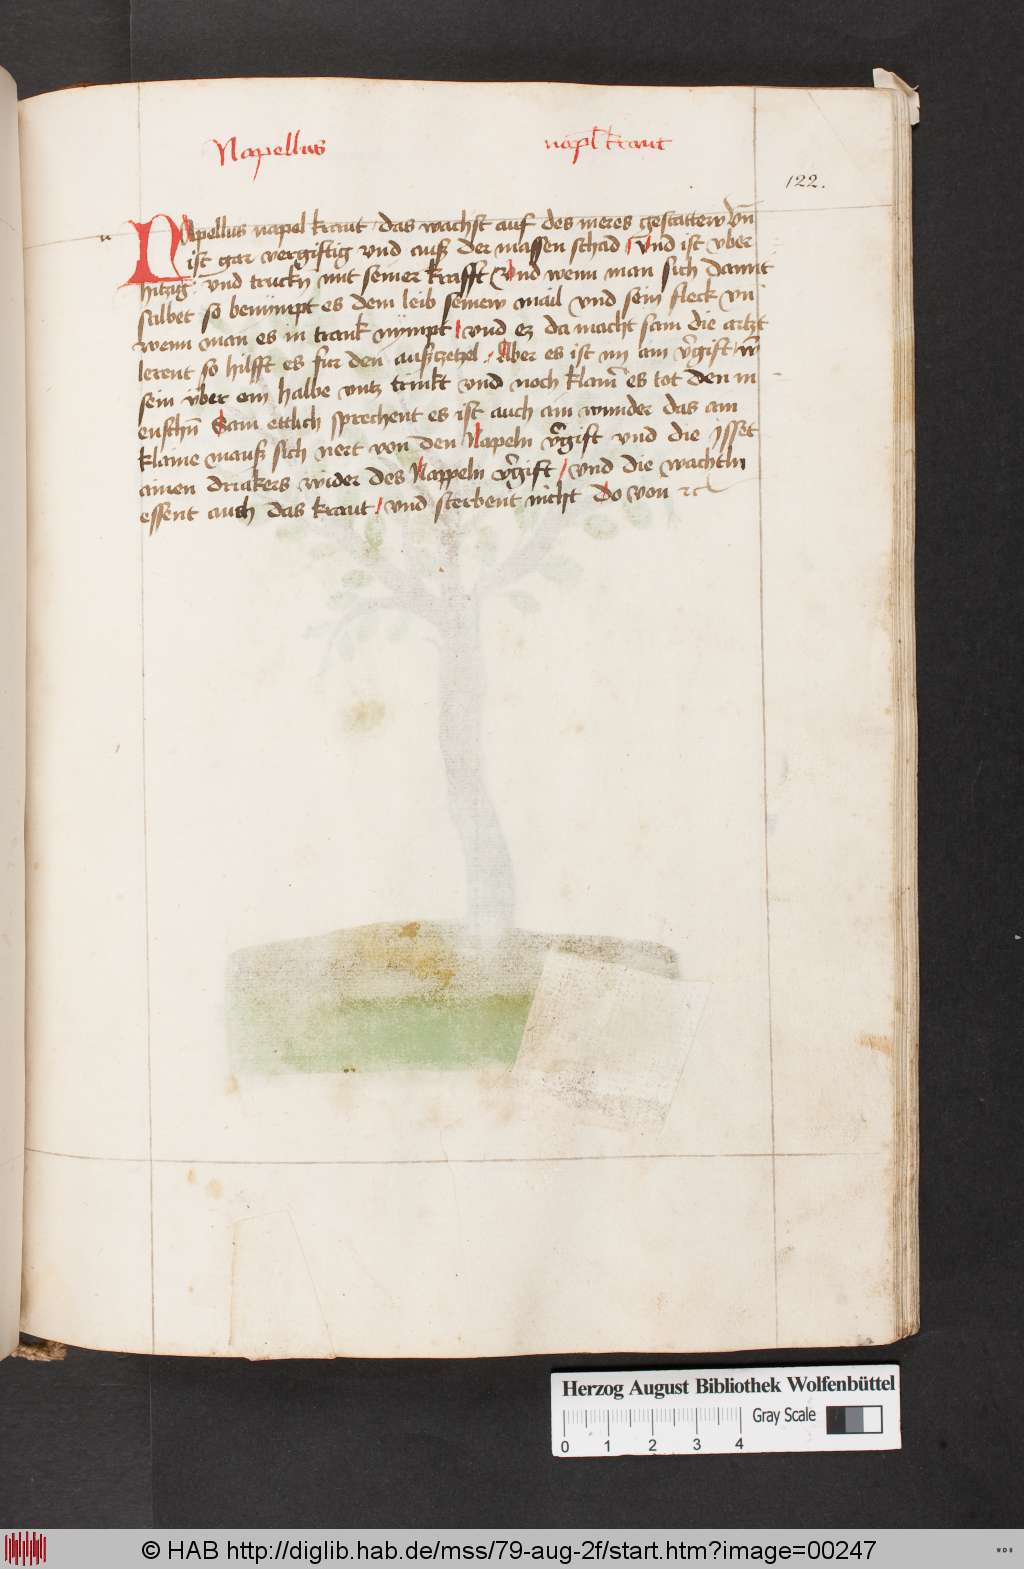 Napellus napl̃ kraut
122.
NApellus napel kraut / das wachst auf des meres gestattew vn̄
ist gar vergiftig vnd auß der massen schad / Vnd ist vber
hitzig vnd truckn mit seiner krafft Vnd wenn man sich damit
salbet so benympt es dem leib seinew mail vnd sein fleck vn̄
wenn man es in trank nympt / vnd ez da macht sam die artzt
lerent so hilfft es fur den außzetzel / Aber es ist im ain v̾gift /
sein vber ein halbe vntz trinkt vnd noch klain̾ es tot den m
enschn̄ Sam ettlich sprechent es ist auch ain wunder das ain
klaine mauß sich nert von den Napeln v̾gift vnd die ysset
ainen driakers wider des Nappeln v̾gift / vnd die wachtln
essent auch das kraut / vnd sterbent nicht do von ⁊c
Herzog August Bibliothek Wolfenbüttel
Gray Scale
0 1 2 3 4
© HAB http://diglib.hab.de/mss/79-aug-2f/start.htm?image=00247